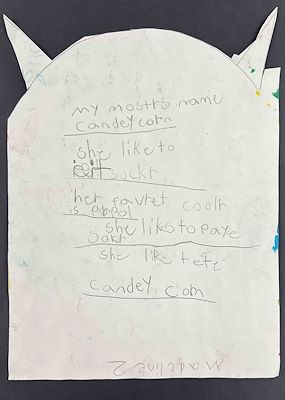 my mostrs name
candeycorn
she like to
eit sockr
her favret coolr
is perpol
she likes to paye
Sokr
she like t ete
candey corn
Madeline 2